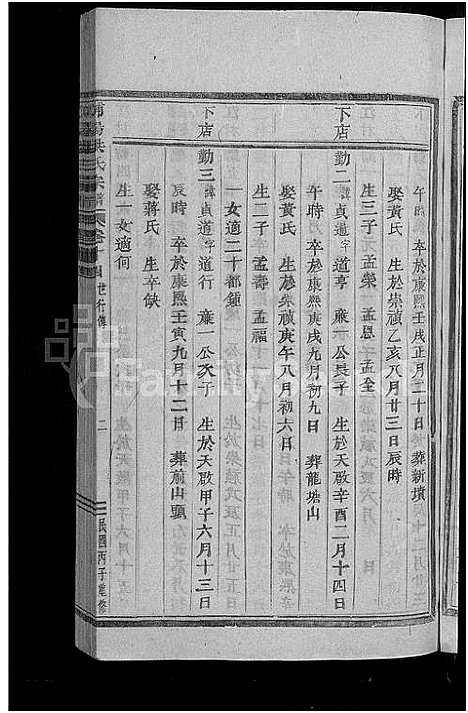 午時 卒於康熙壬戌正月二十日 葬新墳
娶黃氏 生於崇禎乙亥八月廿三日辰時
生三子 元孟榮 孟恩 孟全
下店 勤二 諱貞道字道亨 廉一公長子 生於天啟辛酉二月十四日
午時 卒於康熙庚戌九月初九日 葬龍塘山
娶黃氏 生於崇禎庚午八月初六日
生二子 孟壽 孟福
一女適二十都鍾
下店 勤三 諱貞道字道行 廉一公次子 生於天啟甲子六月十三日
辰時 卒於康熙壬寅九月十二日 葬前山頭
娶蔣氏 生卒缺
生一女適何
洪氏宗譜 卷 十四世行傳 二 民國丙子重修